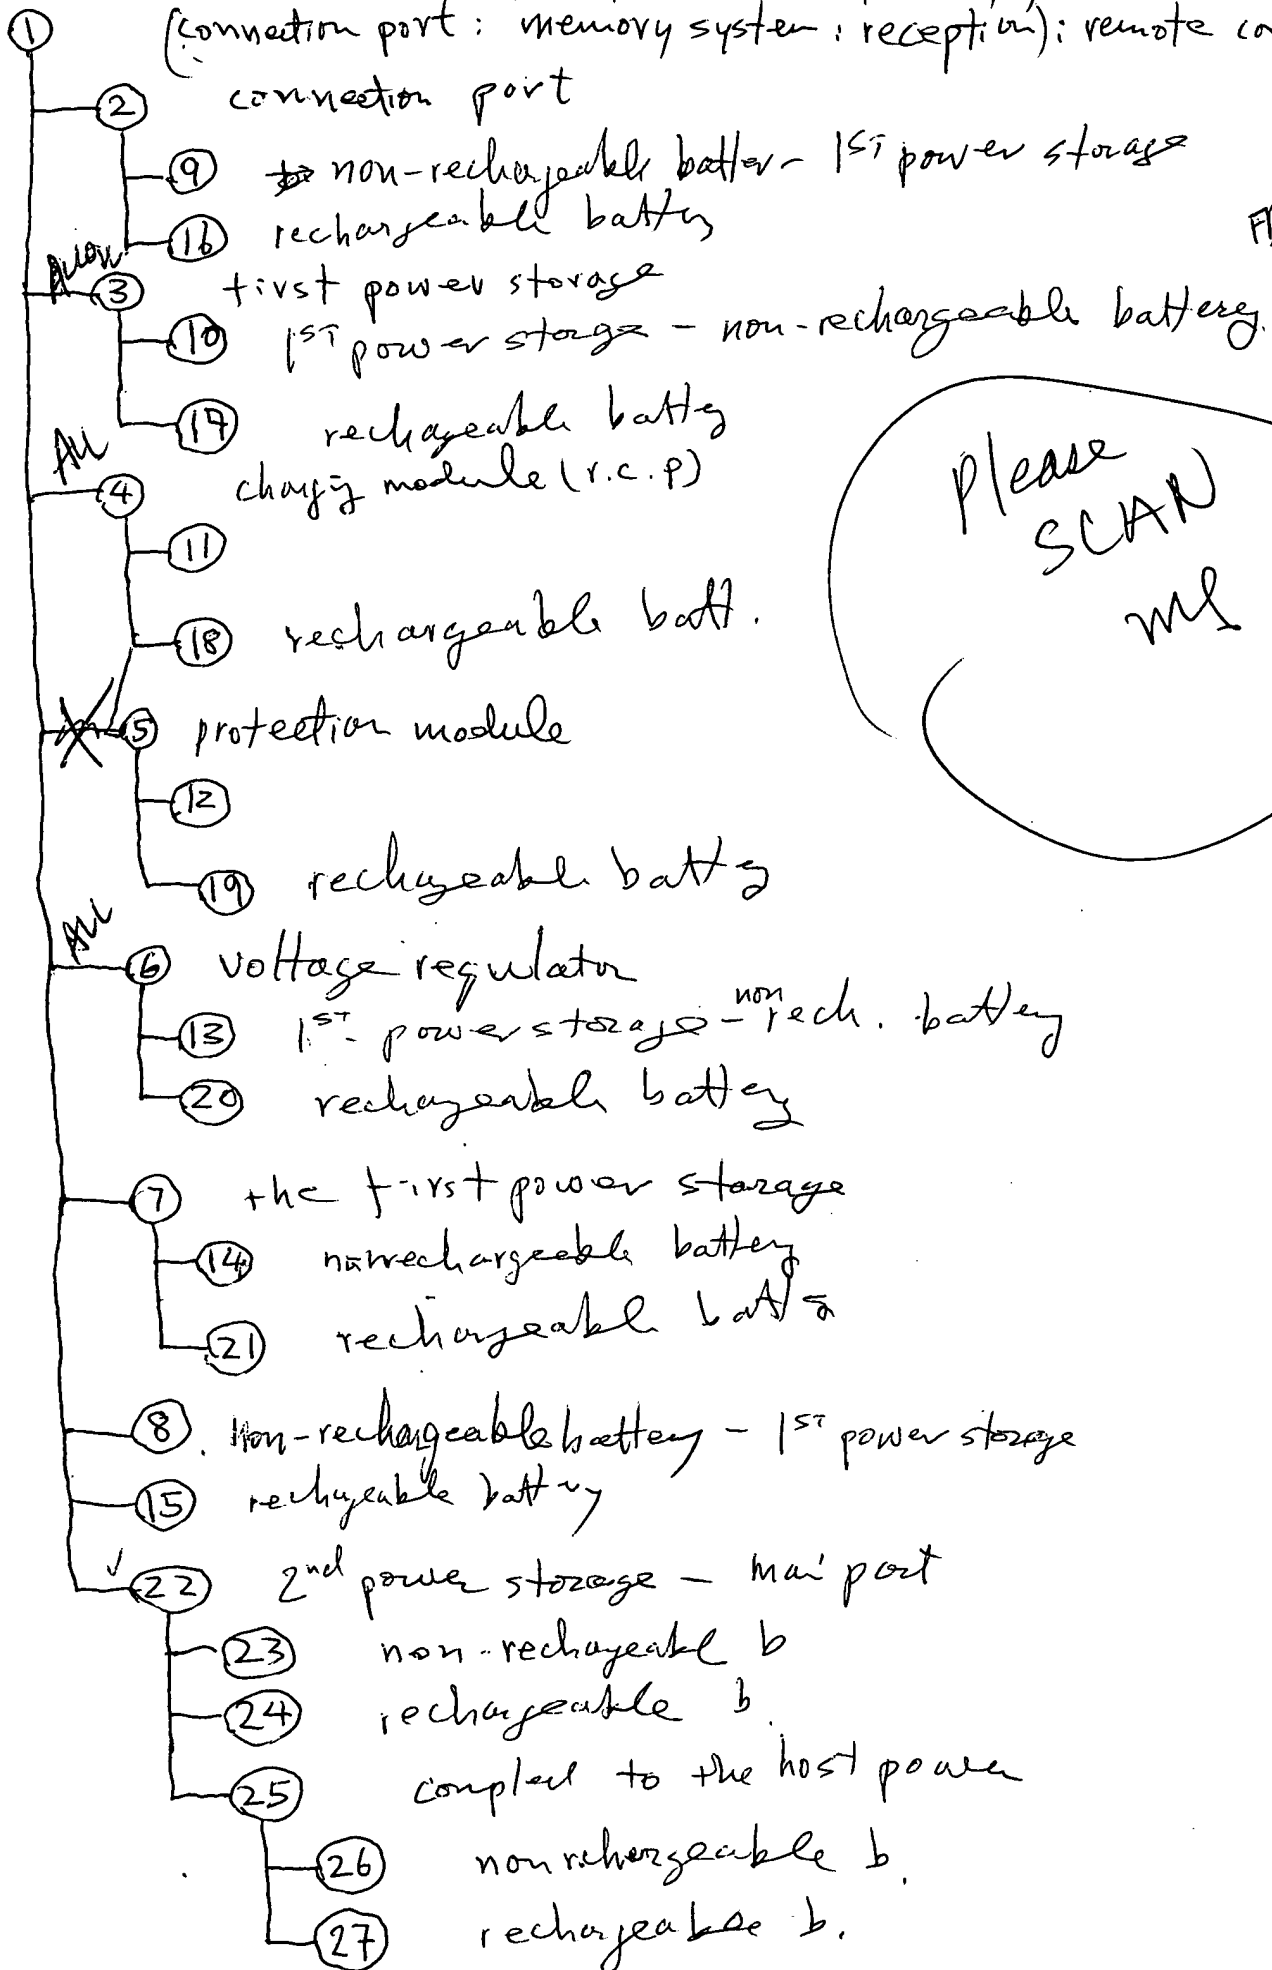 ① (connection port : memory system : reception) : remote co
② connection port
⑨ non-rechargeable batter - 1ST power storage
⑯ rechargeable battery
③ first power storage
⑩ 1ST power storage - non-rechargeable battery.
⑰ rechargeable battery
ALL
④ charging module (r.c.p)
Please
SCAN
me
⑪
⑱ rechargeable batt.
⑤ protection module
⑫
⑲ rechargeable battery
ALL
⑥ voltage regulator
⑬ 1ST power storage - non rech. battery
⑳ rechargeable battery
⑦ the first power storage
⑭ nonrechargeable battery
㉑ rechargeable battery
⑧. Non-rechargeable battery - 1ST power storage
⑮ rechargeable battery
✓ ㉒ 2nd power storage - main port
㉓ non-rechargeable b
㉔ rechargeable b.
㉕ coupled to the host power
㉖ nonrechargeable b.
㉗ rechargeable b.